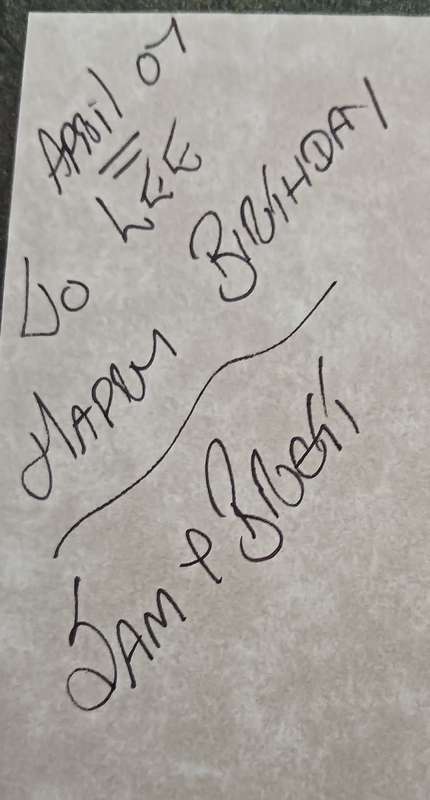 April 07
To LEE
HAPPY BIRTHDAY
SAM +